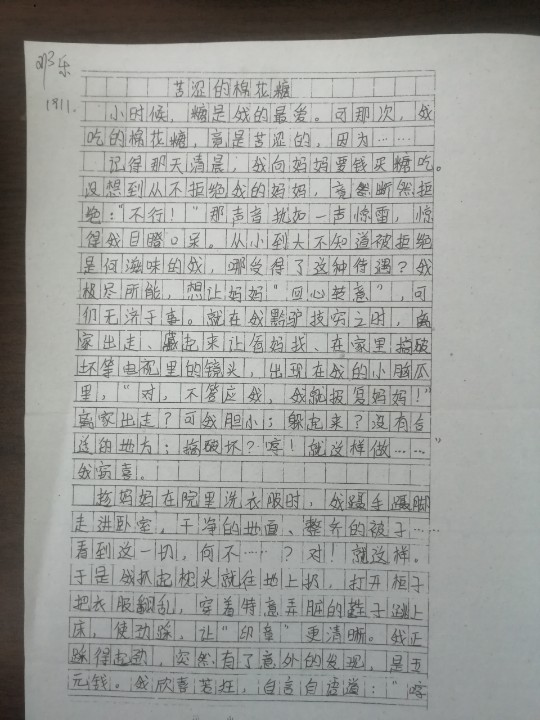 邓乐
1911.
苦涩的棉花糖
小时候，糖是我的最爱。可那次，我
吃的棉花糖，竟是苦涩的，因为……
记得那天清晨，我向妈妈要钱买糖吃。
没想到从不拒绝我的妈妈，竟然断然拒
绝：“不行！”那声音犹如一声惊雷，惊
得我目瞪口呆。从小到大不知道被拒绝
是何滋味的我，哪受得了这种待遇？我
极尽所能，想让妈妈“回心转意”，可
仍无济于事。就在我黔驴技穷之时，离
家出走、藏起来让爸妈找、在家里搞破
坏等电视里的镜头，出现在我的小脑瓜
里，“对，不答应我，我就报复妈妈！”
离家出走？可我胆小；躲起来？没有合
适的地方；搞破坏？哼！就这样做……”
我窃喜。
趁妈妈在院里洗衣服时，我蹑手蹑脚
走进卧室，干净的地面、整齐的被子……
看到这一切，何不……？对！就这样。
于是我抓起枕头就往地上扔，打开柜子
把衣服翻乱，穿着特意弄脏的鞋子跳上
床，使劲踩，让“印章”更清晰。我正
踩得起劲，突然有了意外的发现，是五
元钱。我欣喜若狂，自言自语道：“哼